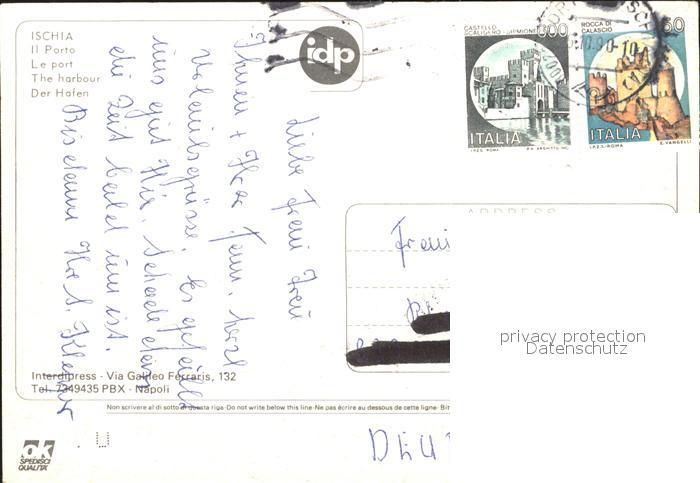 ISCHIA
Il Porto
Le port
The harbour
Der Hafen
idp
CASTELLO
SCALIGERO - SIRMIONE
ITALIA
I.P.Z.S. ROMA
ROCCA DI
CALASCIO
50
ITALIA
I.P.Z.S. - ROMA
E. VANGELLI
Liebe Frau
Ihnen + Ihrer Fam. herzl.
Urlaubsgrüsse. Es gefällt
uns gut hier. Schade dass
die Zeit bald um ist.
Bis dann Ihre
ADDRESS
Frau
privacy protection
Datenschutz
Interdipress - Via Galileo Ferraris, 132
Tel. 7349435 PBX - Napoli
Non scrivere al di sotto di questa riga-Do not write below this line-Ne pas écrire au dessous de cette ligne- Bit
DEU
ok
SPEDISCI
QUALITA'